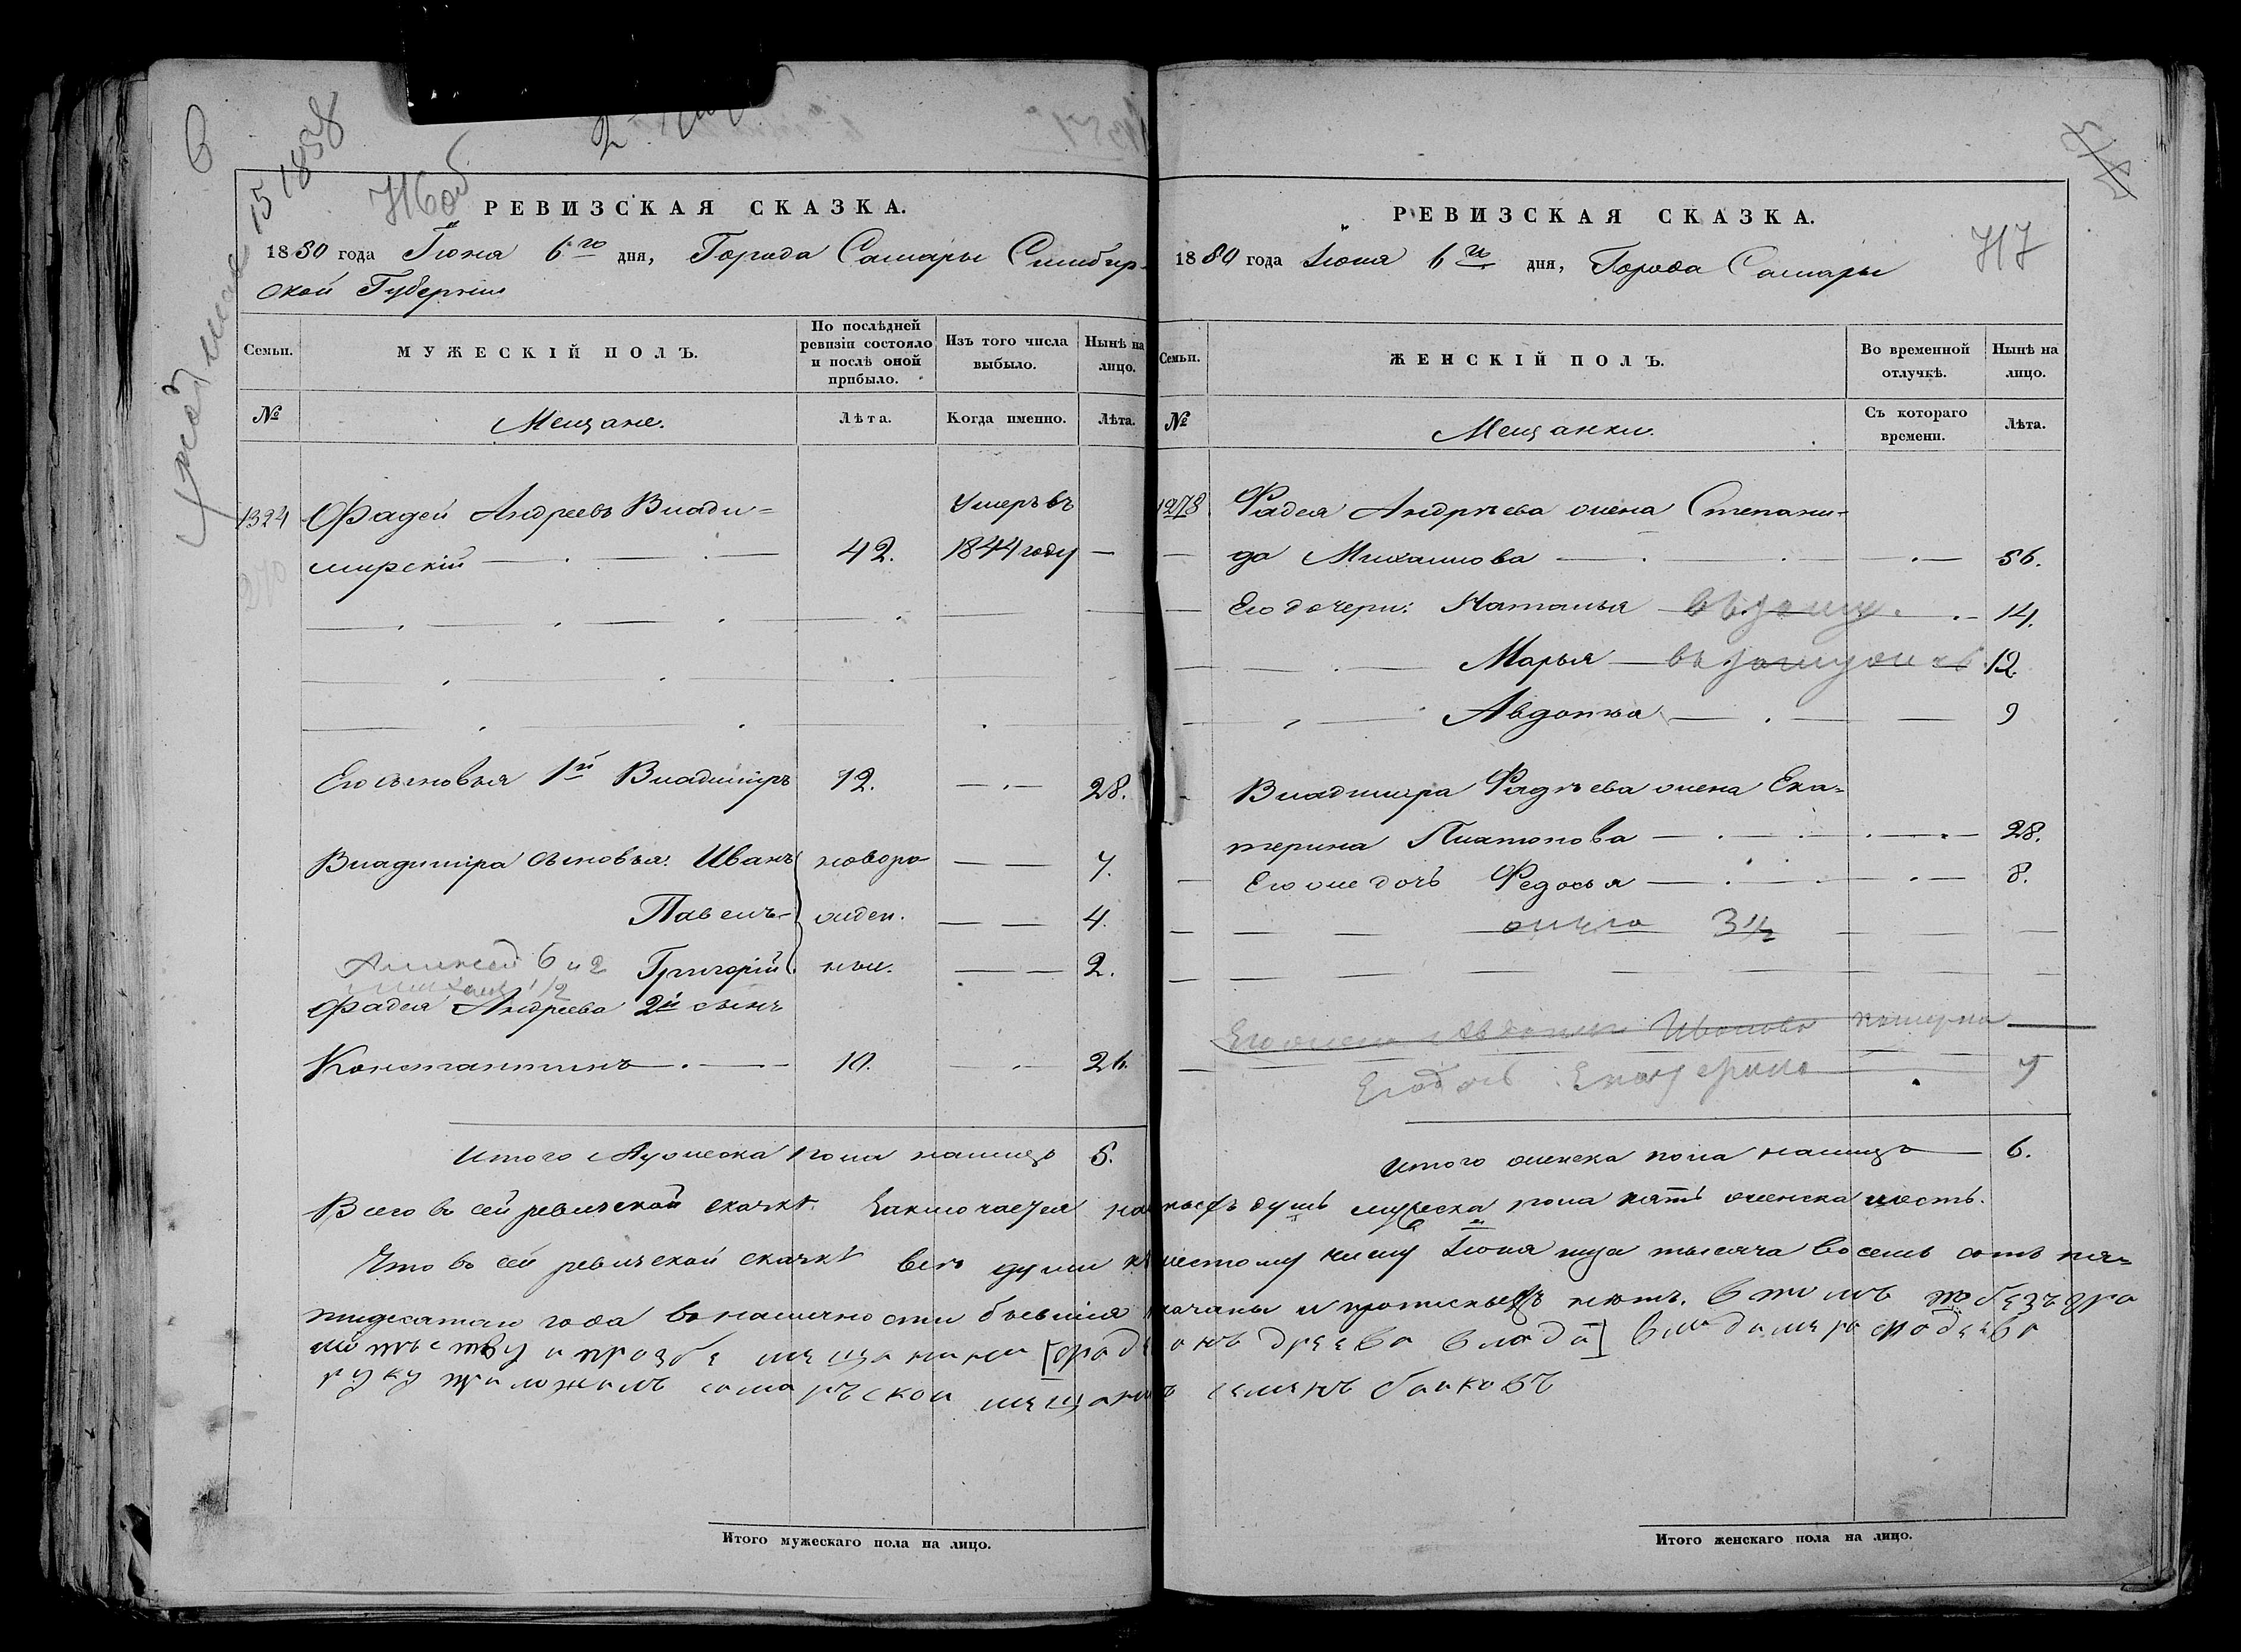 6
15 1858
716 об
РЕВИЗСКАЯ СКАЗКА.
1850 года Іюня 6го дня, Города Самары Симбир-
ской Губерніи
Семьи.
МУЖЕСКІЙ ПОЛЪ.
По послѣдней ревизіи состояло и послѣ оной прибыло.
Изъ того числа выбыло.
Нынѣ на лицо.
№
Мещане.
Лѣта.
Когда именно.
Лѣта.
1324 Фадей Андреевъ Влади= Умеръ въ
мирскій 42. 1844 году —
270
Его сыновья 1й Владиміръ 12. 28.
Владиміра сыновья: Иванъ новоро 7.
Павелъ жден. 4.
Алексей 6 и 2 Григорій ные. 2.
Михаил 1/2
Фадея Андреева 2й сынъ
Константинъ 10. 26.
Итого Мужеска пола налицо 5.
717
РЕВИЗСКАЯ СКАЗКА.
1850 года Іюня 6го дня, Города Самары
Семьи.
ЖЕНСКІЙ ПОЛЪ.
Во временной отлучкѣ.
Нынѣ на лицо.
№
Мещанки.
Съ котораго времени.
Лѣта.
1278 Фадея Андрѣева жена Степани-
да Михаилова 56.
Его дочери: Наталья 14.
Марья 12.
Авдотья 9
Владимира Фадѣева жена Ека=
терина Платонова 28.
Его же дочь Федосья 8.
3 1/2
Его жена Авдотья Иванова померла
Его дочь Екатерина 7
Итого женска пола налицо 6.
Всего в сей ревизской сказкѣ заключается наличныхъ душъ мужеска пола пять женска шесть.
Что в сей ревизской сказкѣ все души къ шестому числу Іюня м-ца тысяча восемь сотъ пя=
тидесятаго года в наличности бывшія показаны и прописныхъ нѣтъ. В томъ
руку приложилъ самарской мещанинъ семенъ
Итого мужескаго пола на лицо.
Итого женскаго пола на лицо.